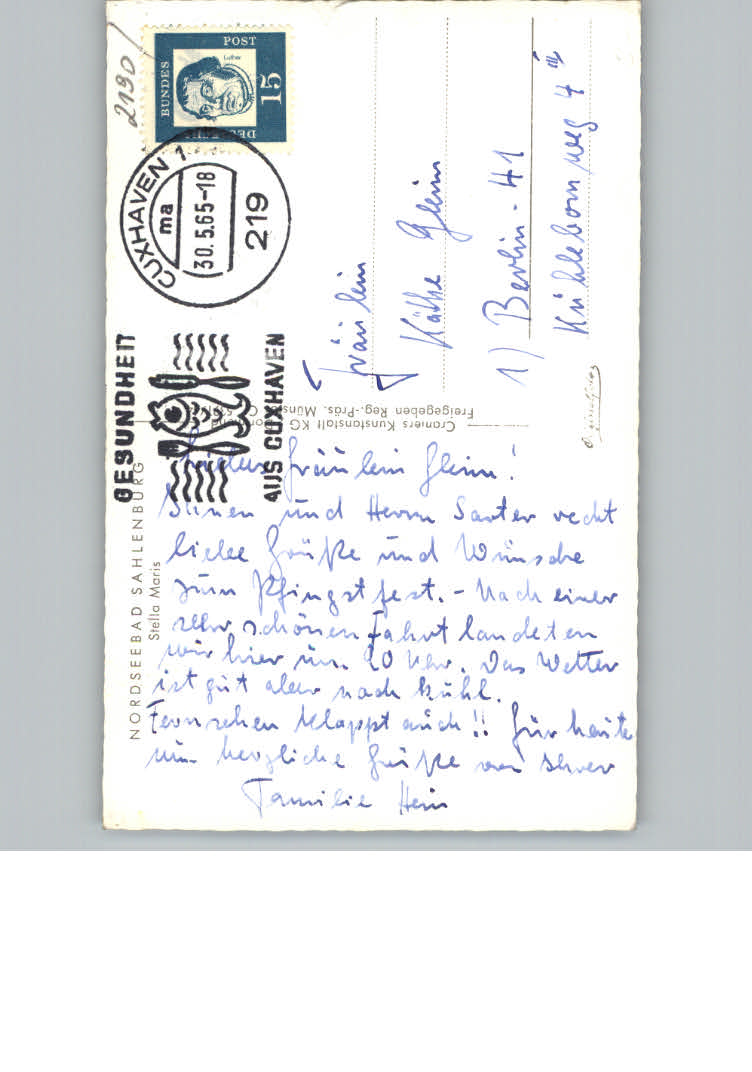 2190
BUNDES
POST
DEUTSCHE
15
Luther
CUXHAVEN 1
ma
30.5.65-18
219
GESUNDHEIT
AUS CUXHAVEN
Fräulein
Käthe Gleim
1) Berlin - 41
Kühlebornweg 4 III
Croners Kunstanstalt KG
Freigegeben Reg.-Präs. Münster
NORDSEEBAD SAHLENBURG
Stella Maris
Liebes Fräulein Gleim!
Ihnen und Herrn Sauter recht
liebe Grüße und Wünsche
zum Pfingstfest. - Nach einer
sehr schönen Fahrt landeten
wir hier um 20 Uhr. Das Wetter
ist gut aber noch kühl.
Fernsehen klappt auch!! Für heute
nun herzliche Grüße von Ihrer
Familie Hein